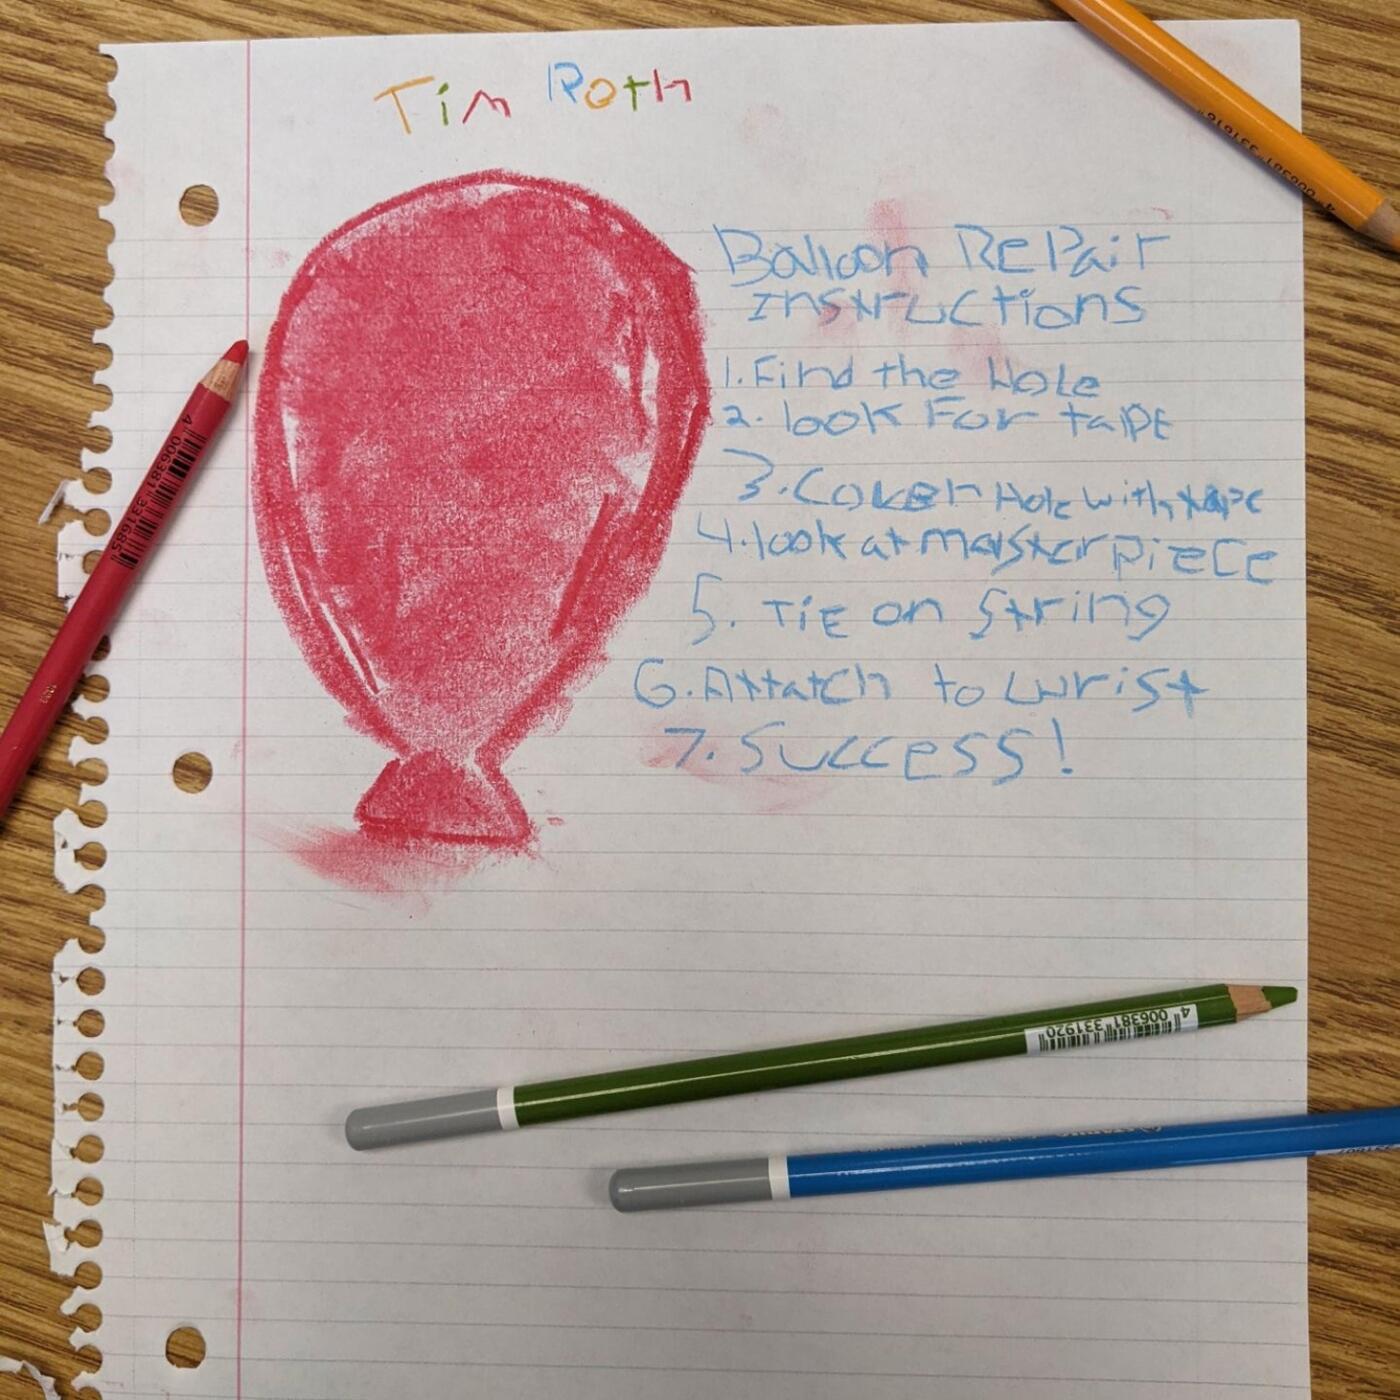 Tim Roth
Balloon RePair
instructions
1. Find the Hole
2. look For tape
3. Cover Hole with tape
4. look at masterpiece
5. Tie on String
6. Attatch to wrist
7. Success!
4 006381 331685
4 006381 331920